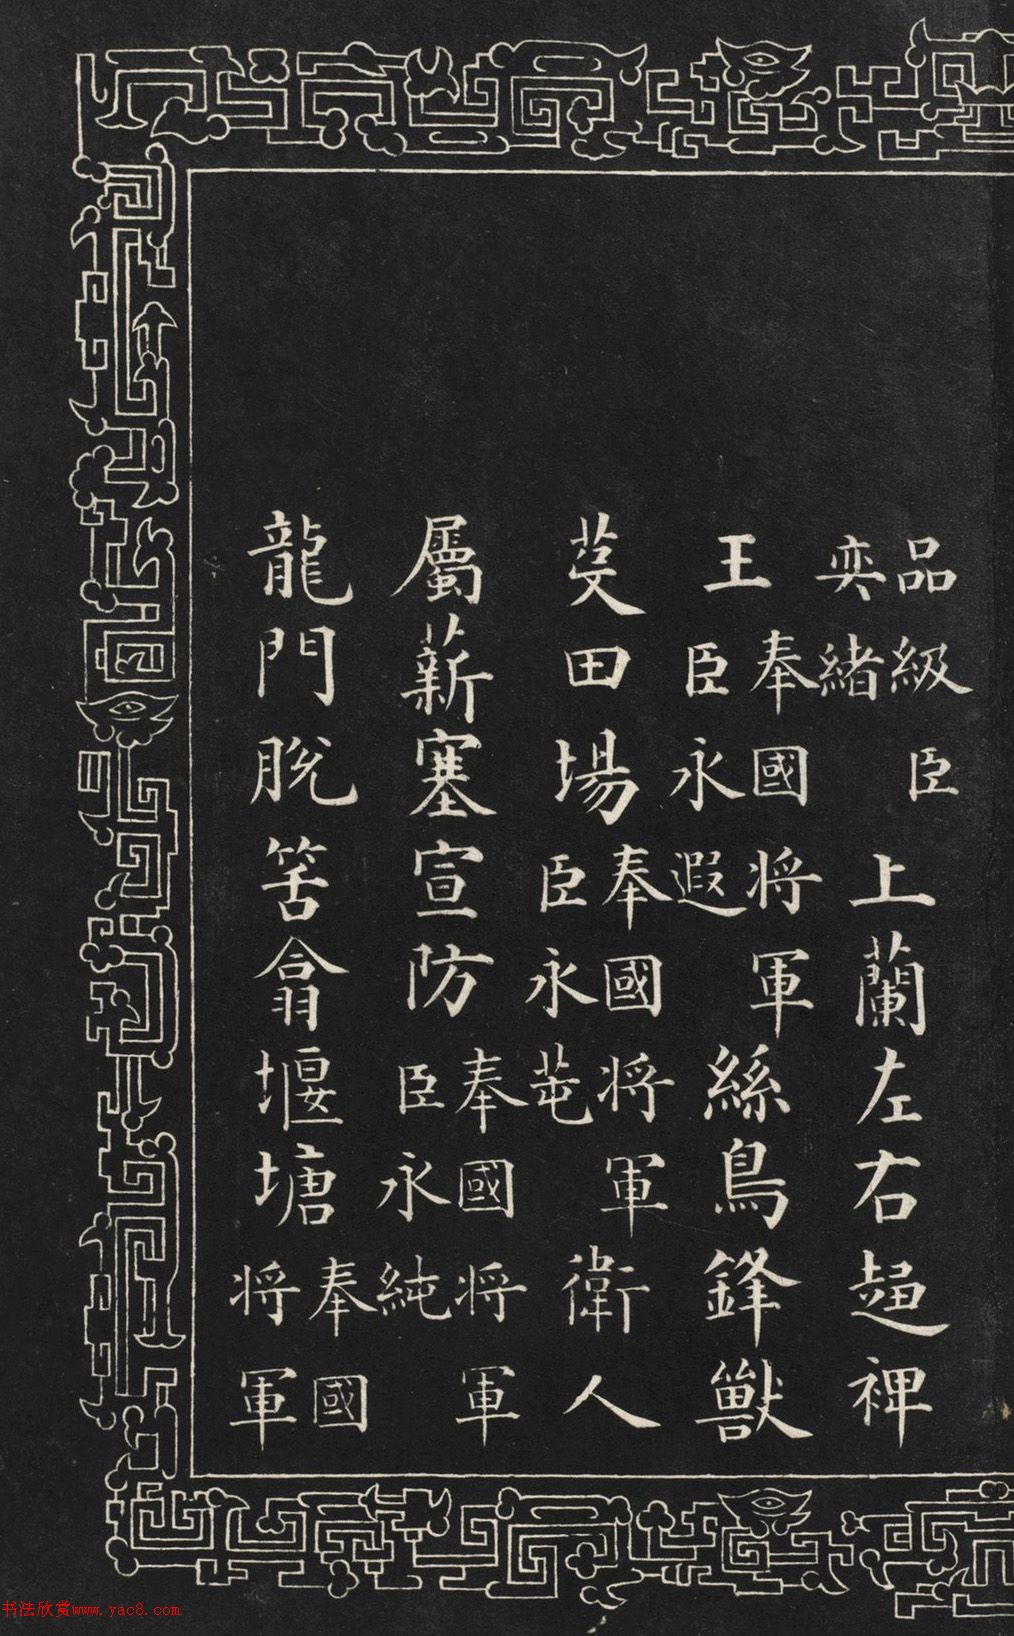 品級臣
奕緒
上蘭左右裨
王
奉國将軍
臣永遐
絲鳥鋒獸
芟田場
奉國将軍
臣永
衛人
屬薪塞宣防
奉國将軍
臣永純
龍門脫筈翕堰塘
奉國
将軍
书法欣赏www.yac8.com